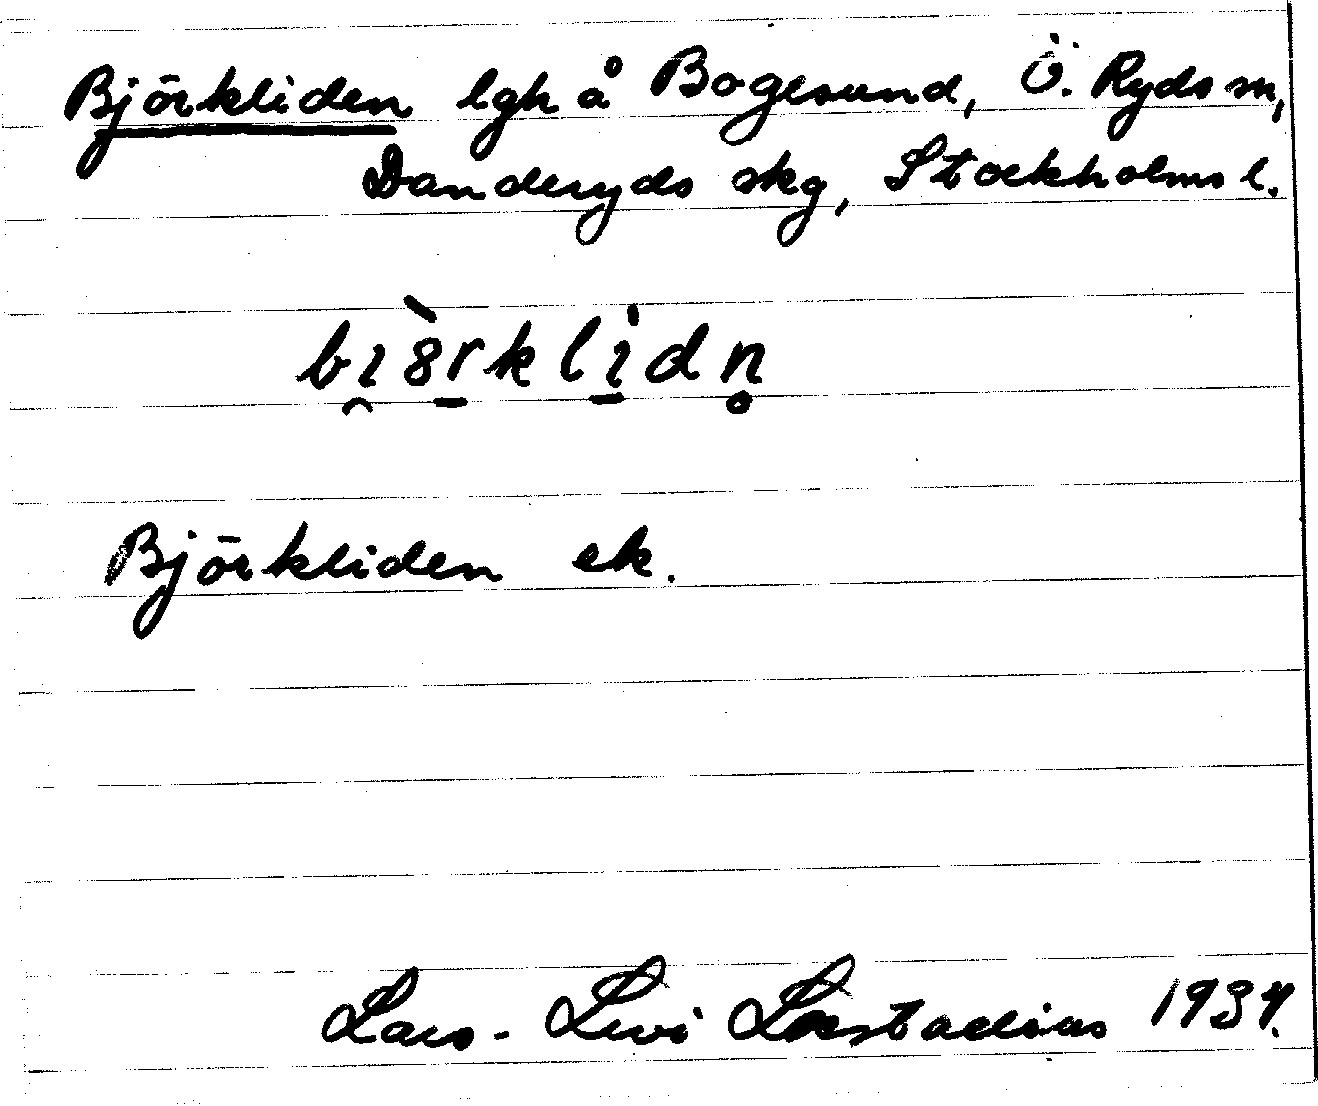 Björkliden lgh å Bogesund, Ö. Ryds sn,
Danderyds skg, Stockholms l.
bı̯ȣ̀r̠klı̠̀dn̥
Björkliden ek.
Lars-Levi Læstadius 1934.